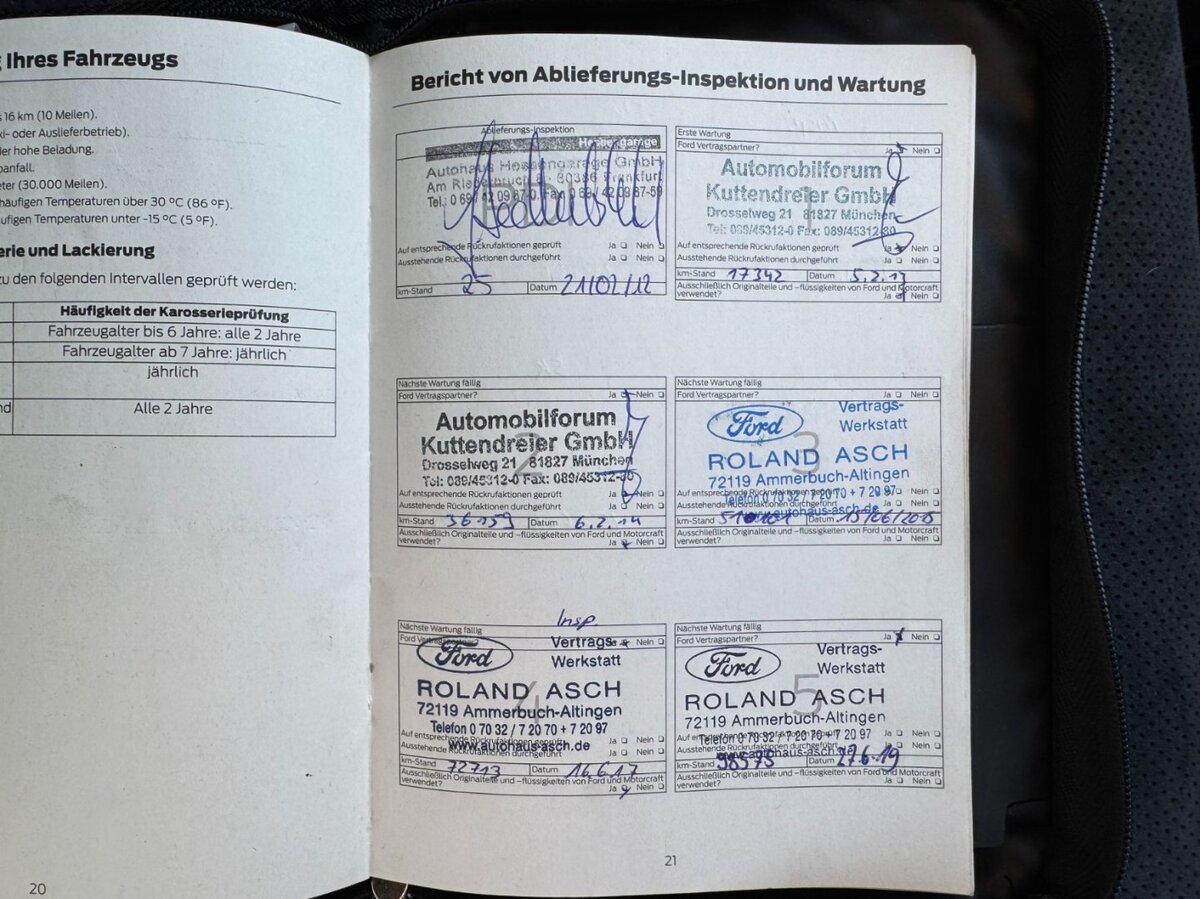 g Ihres Fahrzeugs
s 16 km (10 Meilen).
xi- oder Auslieferbetrieb).
der hohe Beladung.
panfall.
eter (30.000 Meilen).
häufigen Temperaturen über 30 ºC (86 ºF).
ufigen Temperaturen unter -15 ºC (5 ºF).
erie und Lackierung
zu den folgenden Intervallen geprüft werden:
Häufigkeit der Karosserieprüfung
Fahrzeugalter bis 6 Jahre: alle 2 Jahre
Fahrzeugalter ab 7 Jahre: jährlich
jährlich
nd
Alle 2 Jahre
20
Bericht von Ablieferungs-Inspektion und Wartung
Ablieferungs-Inspektion
Hessengarage
Autohaus Hessengarage GmbH
Am Riederbruch 80386 Frankfurt
Tel.: 0 69 / 42 09 87-0, Fax 0 69 / 42 09 87-59
Auf entsprechende Rückrufaktionen geprüft Ja Nein
Ausstehende Rückrufaktionen durchgeführt Ja Nein
km-Stand 25 Datum 21/02/12
Erste Wartung
Ford Vertragspartner? Ja Nein
1
Automobilforum
Kuttendreier GmbH
Drosselweg 21 81827 München
Tel: 089/45312-0 Fax: 089/45312-30
Auf entsprechende Rückrufaktionen geprüft Ja Nein
Ausstehende Rückrufaktionen durchgeführt Ja Nein
km-Stand 17342 Datum 5.2.13
Ausschließlich Originalteile und -flüssigkeiten von Ford und Motorcraft
verwendet? Ja Nein
Nächste Wartung fällig
Ford Vertragspartner? Ja Nein
2
Automobilforum
Kuttendreier GmbH
Drosselweg 21 81827 München
Tel: 089/45312-0 Fax: 089/45312-30
Auf entsprechende Rückrufaktionen geprüft Ja Nein
Ausstehende Rückrufaktionen durchgeführt Ja Nein
km-Stand 36159 Datum 6.2.14
Ausschließlich Originalteile und -flüssigkeiten von Ford und Motorcraft
verwendet? Ja Nein
Nächste Wartung fällig
Ford Vertragspartner? Ja Nein
3
Ford Vertrags-
Werkstatt
ROLAND ASCH
72119 Ammerbuch-Altingen
Telefon 0 70 32 / 7 20 70 + 7 20 97
www.autohaus-asch.de
Auf entsprechende Rückrufaktionen geprüft Ja Nein
Ausstehende Rückrufaktionen durchgeführt Ja Nein
km-Stand Datum 15/06/2015
Ausschließlich Originalteile und -flüssigkeiten von Ford und Motorcraft
verwendet? Ja Nein
Insp
Nächste Wartung fällig
Ford Vertragspartner? Ja Nein
4
Ford Vertrags-
Werkstatt
ROLAND ASCH
72119 Ammerbuch-Altingen
Telefon 0 70 32 / 7 20 70 + 7 20 97
www.autohaus-asch.de
Auf entsprechende Rückrufaktionen geprüft Ja Nein
Ausstehende Rückrufaktionen durchgeführt Ja Nein
km-Stand 72713 Datum 16.6.17
Ausschließlich Originalteile und -flüssigkeiten von Ford und Motorcraft
verwendet? Ja Nein
Nächste Wartung fällig
Ford Vertragspartner? Ja Nein
5
Ford Vertrags-
Werkstatt
ROLAND ASCH
72119 Ammerbuch-Altingen
Telefon 0 70 32 / 7 20 70 + 7 20 97
www.autohaus-asch.de
Auf entsprechende Rückrufaktionen geprüft Ja Nein
Ausstehende Rückrufaktionen durchgeführt Ja Nein
km-Stand 98573 Datum 27.6.19
Ausschließlich Originalteile und -flüssigkeiten von Ford und Motorcraft
verwendet? Ja Nein
21